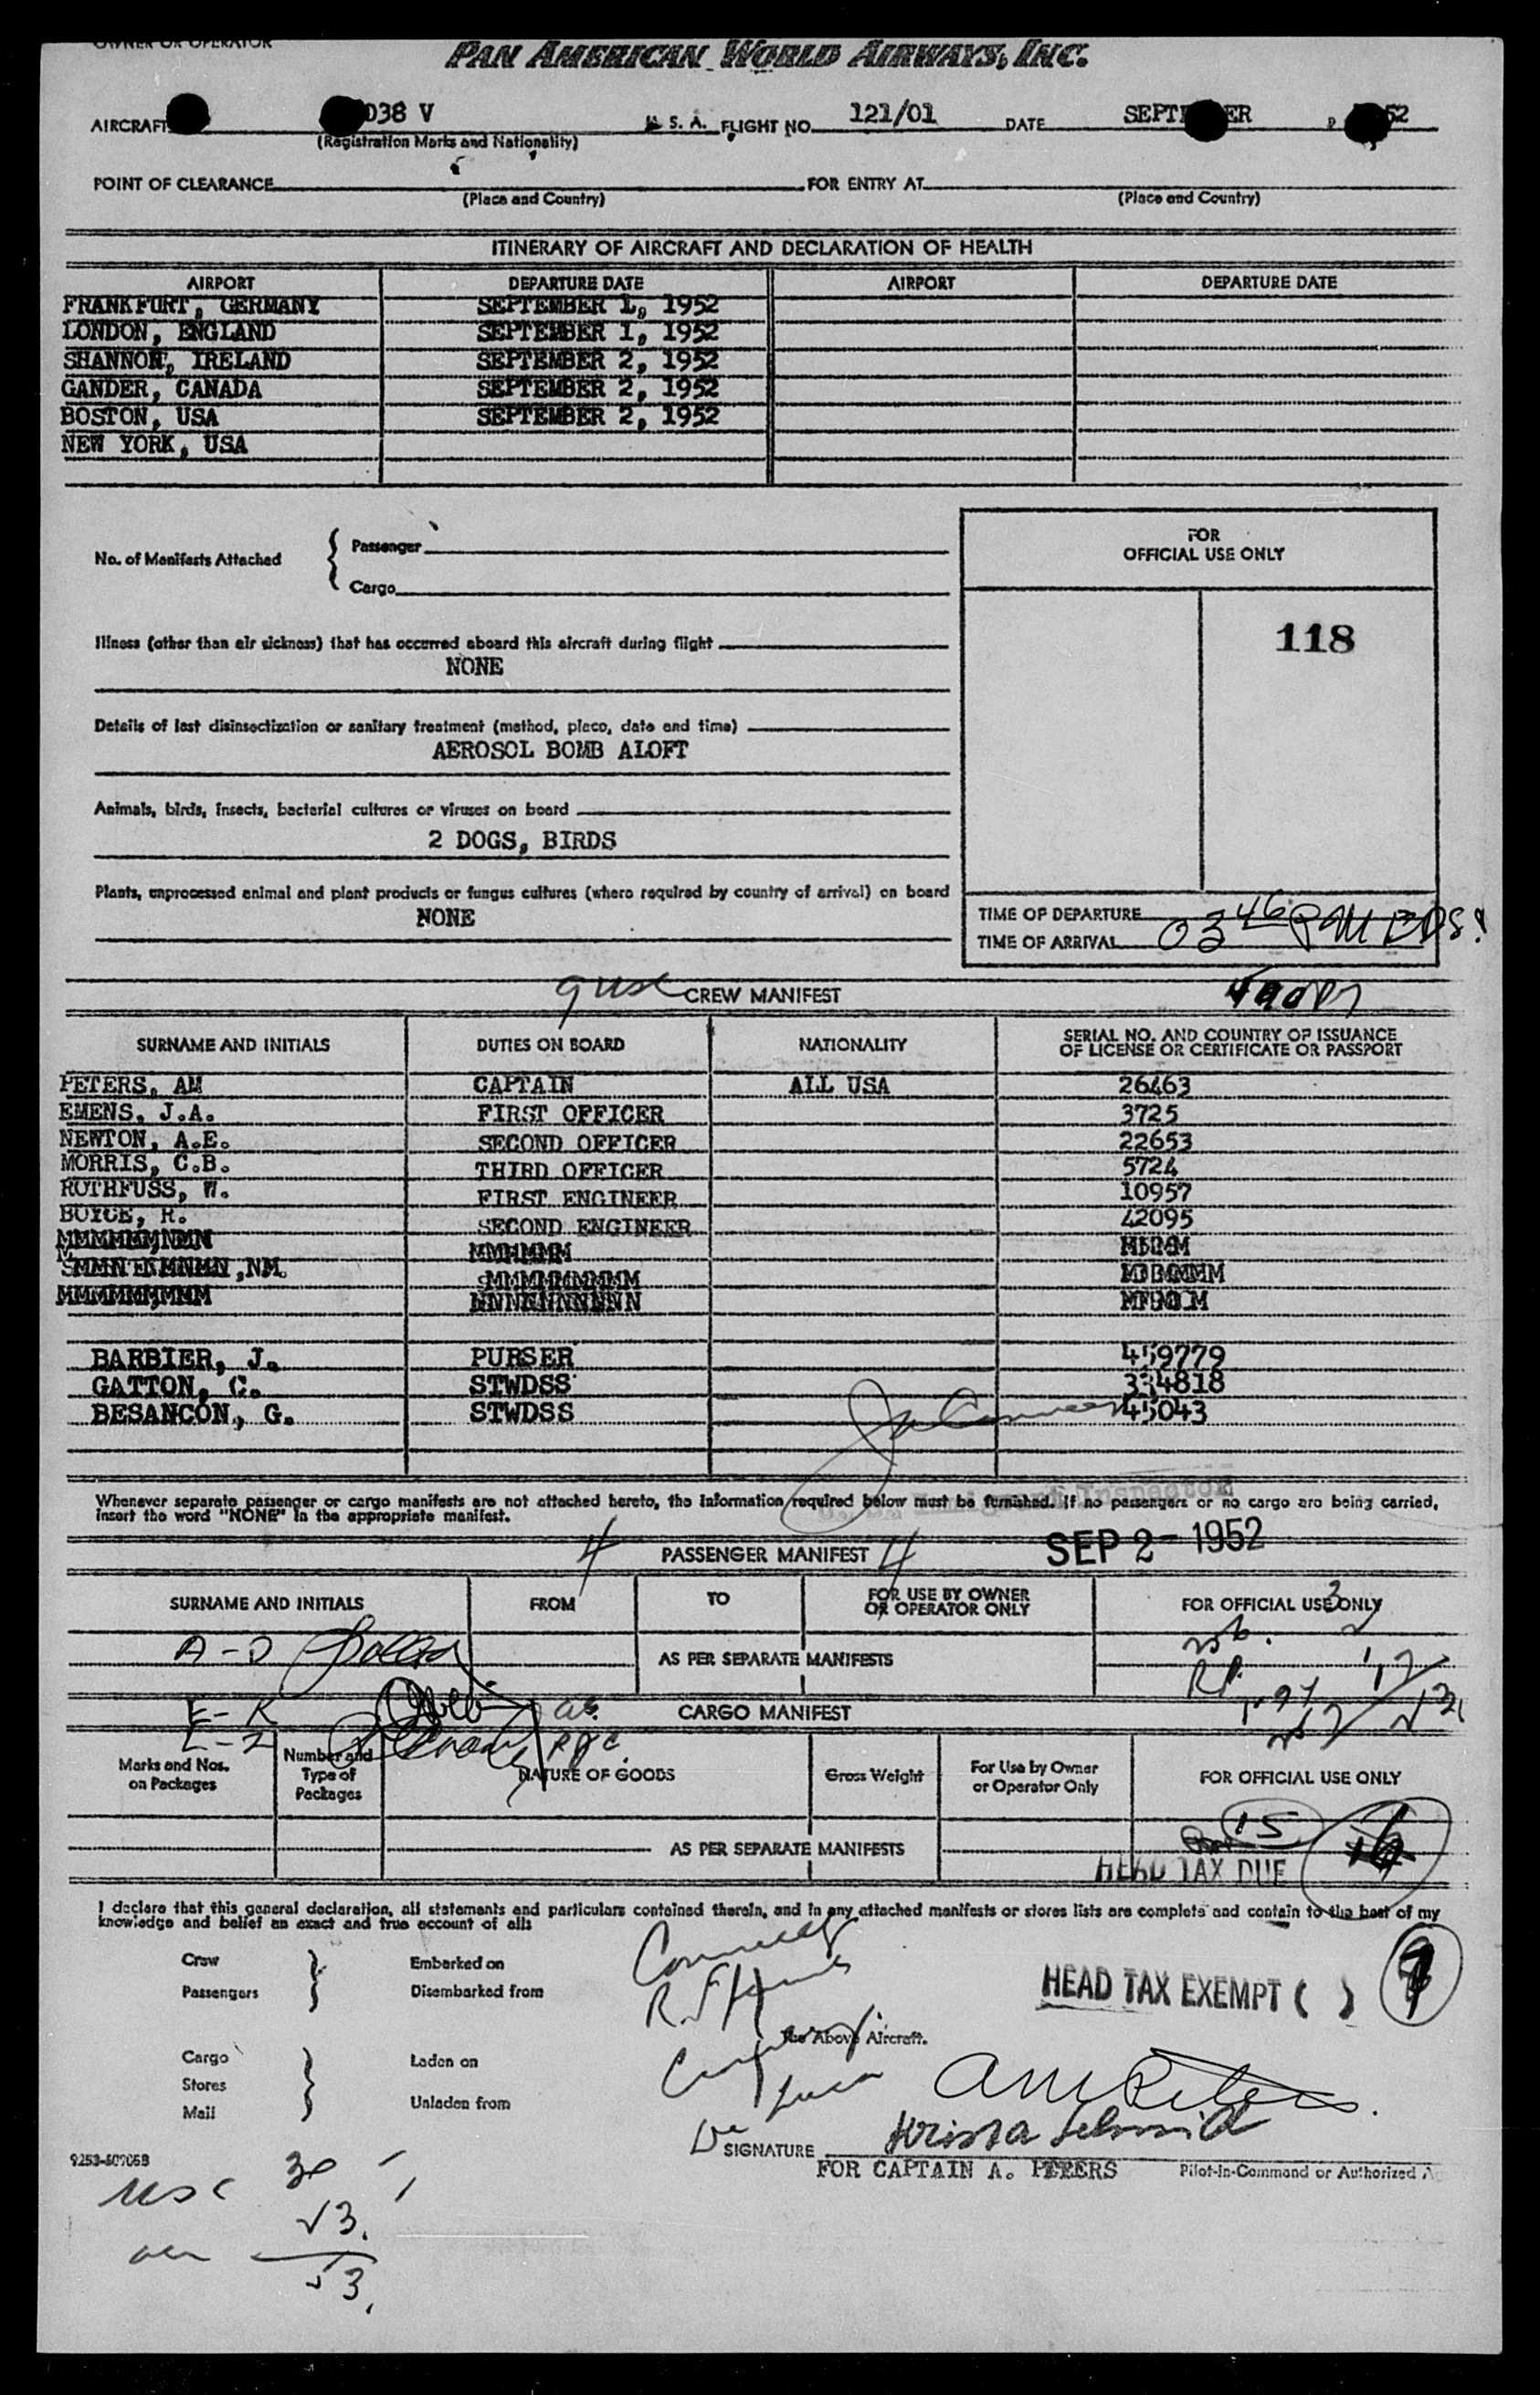 OWNER OR OPERATOR
PAN AMERICAN WORLD AIRWAYS, INC.
AIRCRAFT 038 V U. S. A. FLIGHT NO. 121/01 DATE SEPTEMBER 52
(Registration Marks and Nationality)
POINT OF CLEARANCE FOR ENTRY AT
(Place and Country) (Place and Country)
ITINERARY OF AIRCRAFT AND DECLARATION OF HEALTH
AIRPORT DEPARTURE DATE AIRPORT DEPARTURE DATE
FRANKFURT, GERMANY SEPTEMBER 1, 1952
LONDON, ENGLAND SEPTEMBER 1, 1952
SHANNON, IRELAND SEPTEMBER 2, 1952
GANDER, CANADA SEPTEMBER 2, 1952
BOSTON, USA SEPTEMBER 2, 1952
NEW YORK, USA
No. of Manifests Attached { Passenger
Cargo
FOR
OFFICIAL USE ONLY
118
Illness (other than air sickness) that has occurred aboard this aircraft during flight
NONE
Details of last disinsectization or sanitary treatment (method, place, date and time)
AEROSOL BOMB ALOFT
Animals, birds, insects, bacterial cultures or viruses on board
2 DOGS, BIRDS
Plants, unprocessed animal and plant products or fungus cultures (where required by country of arrival) on board
NONE
TIME OF DEPARTURE
TIME OF ARRIVAL 03 46 PM EDS
9 usc CREW MANIFEST
SURNAME AND INITIALS DUTIES ON BOARD NATIONALITY SERIAL NO. AND COUNTRY OF ISSUANCE
OF LICENSE OR CERTIFICATE OR PASSPORT
PETERS, AM CAPTAIN ALL USA 26463
EMENS, J.A. FIRST OFFICER 3725
NEWTON, A.E. SECOND OFFICER 22653
MORRIS, C.B. THIRD OFFICER 5724
ROTHFUSS, W. FIRST ENGINEER 10957
BOYCE, R. SECOND ENGINEER 42095
BARBIER, J. PURSER 459779
GATTON, C. STWDSS 334818
BESANCON, G. STWDSS 45043
Whenever separate passenger or cargo manifests are not attached hereto, the information required below must be furnished. If no passengers or no cargo are being carried,
insert the word "NONE" in the appropriate manifest.
4 PASSENGER MANIFEST 4 SEP 2- 1952
SURNAME AND INITIALS FROM TO FOR USE BY OWNER
OR OPERATOR ONLY FOR OFFICIAL USE ONLY
A-D AS PER SEPARATE MANIFESTS
E-K CARGO MANIFEST
L-Z
Marks and Nos.
on Packages Number and
Type of
Packages NATURE OF GOODS Gross Weight For Use by Owner
or Operator Only FOR OFFICIAL USE ONLY
15
AS PER SEPARATE MANIFESTS
HEAD TAX DUE
I declare that this general declaration, all statements and particulars contained therein, and in any attached manifests or stores lists are complete and contain to the best of my
knowledge and belief an exact and true account of all:
Crew Embarked on
Passengers Disembarked from
HEAD TAX EXEMPT ( )
the Above Aircraft.
Cargo Laden on
Stores
Mail Unladen from
AM Peters
Krista Schmid
SIGNATURE
FOR CAPTAIN A. PETERS Pilot-in-Command or Authorized
usc 30